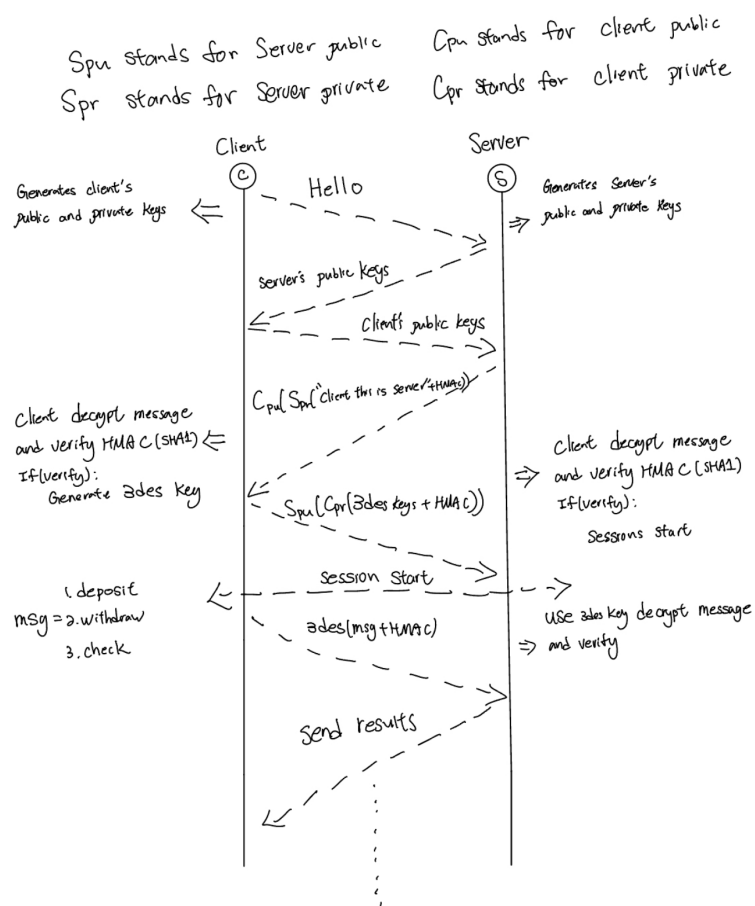 Spu stands for Server public
Cpu stands for client public
Spr stands for Server private
Cpr stands for client private
Client
Server
C
S
Generates client's
public and private keys
Hello
Generates Server's
public and private keys
Server's public keys
Client's public keys
Cpu(Spr("client this is server"+HMAC))
Client decrypt message
and verify HMAC(SHA1)
If(verify):
Generate 3des key
Client decrypt message
and verify HMAC(SHA1)
If(verify):
Sessions start
Spu(Cpr(3des keys + HMAC))
Session start
1. deposit
msg = 2. withdraw
3. check
3des(msg+HMAC)
use 3des key decrypt message
and verify
Send results